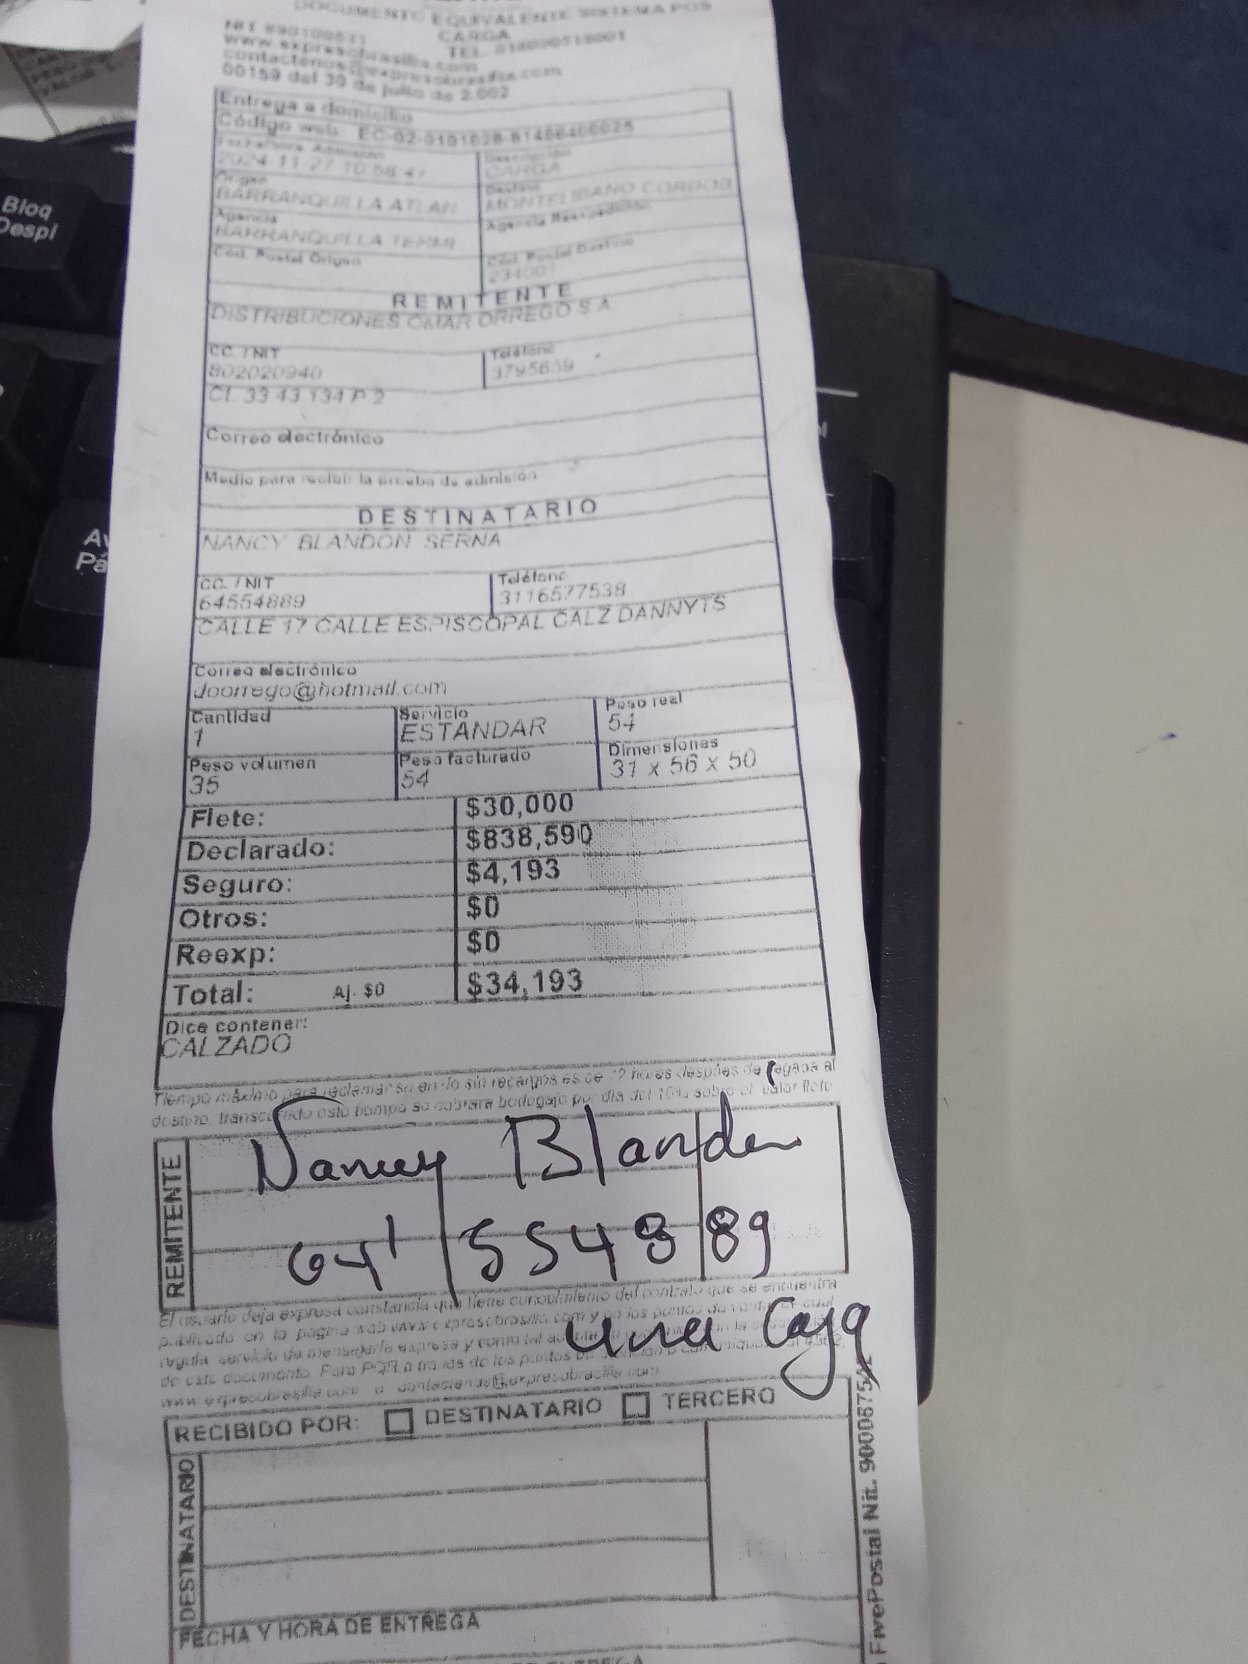 DOCUMENTO EQUIVALENTE SISTEMA POS
CARGA
NIT 890100531 TEL. 018000518001
www.expresobrasilia.com
contactenos@expresobrasilia.com
00159 del 30 de julio de 2.002
Entrega a domicilio
Código web: EC-02-0101028-81466406025
Fecha/hora Admisión
2024-11-27 10:56:47
Descripción
CARGA
Origen
BARRANQUILLA ATLAN
Destino
MONTELIBANO CORDOB
Agencia
BARRANQUILLA TERMI
Agencia Reexpedición
Cód. Postal Origen
Cód. Postal Destino
234001
REMITENTE
DISTRIBUCIONES OMAR ORREGO S A
CC. / NIT
802020940
Teléfono
3795659
CL 33 43 134 P 2
Correo electrónico
Medio para recibir la prueba de admisión
DESTINATARIO
NANCY BLANDON SERNA
CC. / NIT
64554889
Teléfono
3116577538
CALLE 17 CALLE ESPISCOPAL CALZ DANNYTS
Correo electrónico
doorrego@hotmail.com
Cantidad
1
Servicio
ESTANDAR
Peso real
54
Peso volumen
35
Peso facturado
54
Dimensiones
31 x 56 x 50
Flete: $30,000
Declarado: $838,590
Seguro: $4,193
Otros: $0
Reexp: $0
Total: Aj. $0 $34,193
Dice contener:
CALZADO
Tiempo máximo para reclamar su envío sin recargos es de 72 horas después de llegada al
destino, transcurrido este tiempo se cobrara bodegaje por día del 10% sobre el valor flete
REMITENTE
Nancy Blandon
64'554889
El usuario deja expresa constancia que tiene conocimiento del contrato que se encuentra
publicado en la pagina web www.expresobrasilia.com y en los puntos de venta
regula servicio de mensajería expresa y como tal
de este documento. Para PQR a través de los puntos de
www.expresobrasilia.com o contactenos@expresobrasilia.com
una Caja
RECIBIDO POR: DESTINATARIO TERCERO
DESTINATARIO
FECHA Y HORA DE ENTREGA
FivePostal Nit.